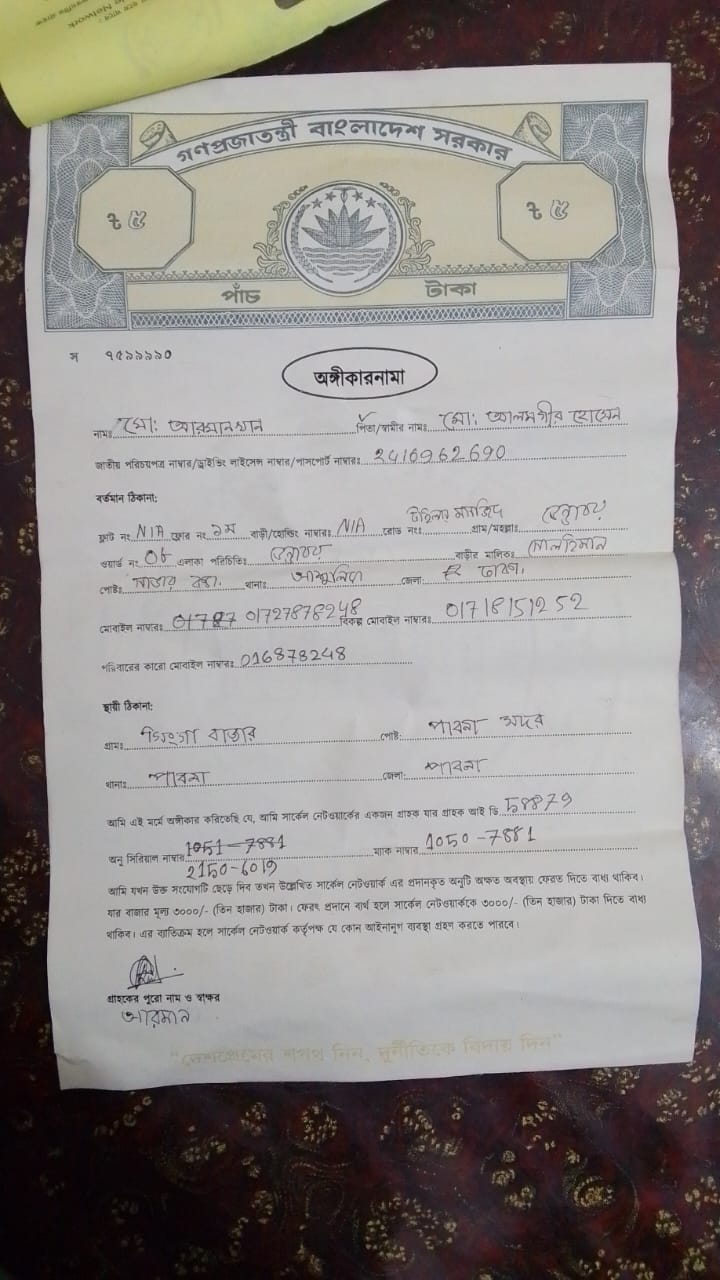 গণপ্রজাতন্ত্রী বাংলাদেশ সরকার
৳ ৫ ৳ ৫
পাঁচ টাকা
স ৭৫৯৯৯৯০
অঙ্গীকারনামা
নামঃ মো: আরমান খান পিতা/স্বামীর নামঃ মো: আলমগীর হোসেন
জাতীয় পরিচয়পত্র নাম্বার/ড্রাইভিং লাইসেন্স নাম্বার/পাসপোর্ট নাম্বারঃ 2416962690
বর্তমান ঠিকানা:
ফ্লাট নং N/A ফ্লোর নং ১ম বাড়ী/হোল্ডিং নাম্বারঃ N/A রোড নংঃ মসজিদ গ্রাম/মহল্লাঃ
ওয়ার্ড নং 06 এলাকা পরিচিতিঃ বাড়ীর মালিকঃ
পোষ্টঃ থানাঃ আশুলিয়া জেলা: ঢাকা,
মোবাইল নাম্বারঃ 01727878248 বিকল্প মোবাইল নাম্বারঃ 01718151252
পরিবারের কারো মোবাইল নাম্বারঃ 016878248
স্থায়ী ঠিকানা:
গ্রামঃ বাজার পোষ্ট: পাবনা সদর
থানাঃ পাবনা জেলা: পাবনা
আমি এই মর্মে অঙ্গীকার করিতেছি যে, আমি সার্কেল নেটওয়ার্কের একজন গ্রাহক যার গ্রাহক আই ডি 58879
অনু সিরিয়াল নাম্বার 1051-7881 ম্যাক নাম্বার 1050-7881
2150-6019
আমি যখন উক্ত সংযোগটি ছেড়ে দিব তখন উল্লেখিত সার্কেল নেটওয়ার্ক এর প্রদানকৃত অনুটি অক্ষত অবস্থায় ফেরত দিতে বাধ্য থাকিব।
যার বাজার মূল্য ৩০০০/- (তিন হাজার) টাকা। ফেরৎ প্রদানে ব্যর্থ হলে সার্কেল নেটওয়ার্ককে ৩০০০/- (তিন হাজার) টাকা দিতে বাধ্য
থাকিব। এর ব্যতিক্রম হলে সার্কেল নেটওয়ার্ক কর্তৃপক্ষ যে কোন আইনানুগ ব্যবস্থা গ্রহণ করতে পারবে।
গ্রাহকের পুরো নাম ও স্বাক্ষর
আরমান
“দেশপ্রেমের শপথ নিন, দুর্নীতিকে বিদায় দিন”